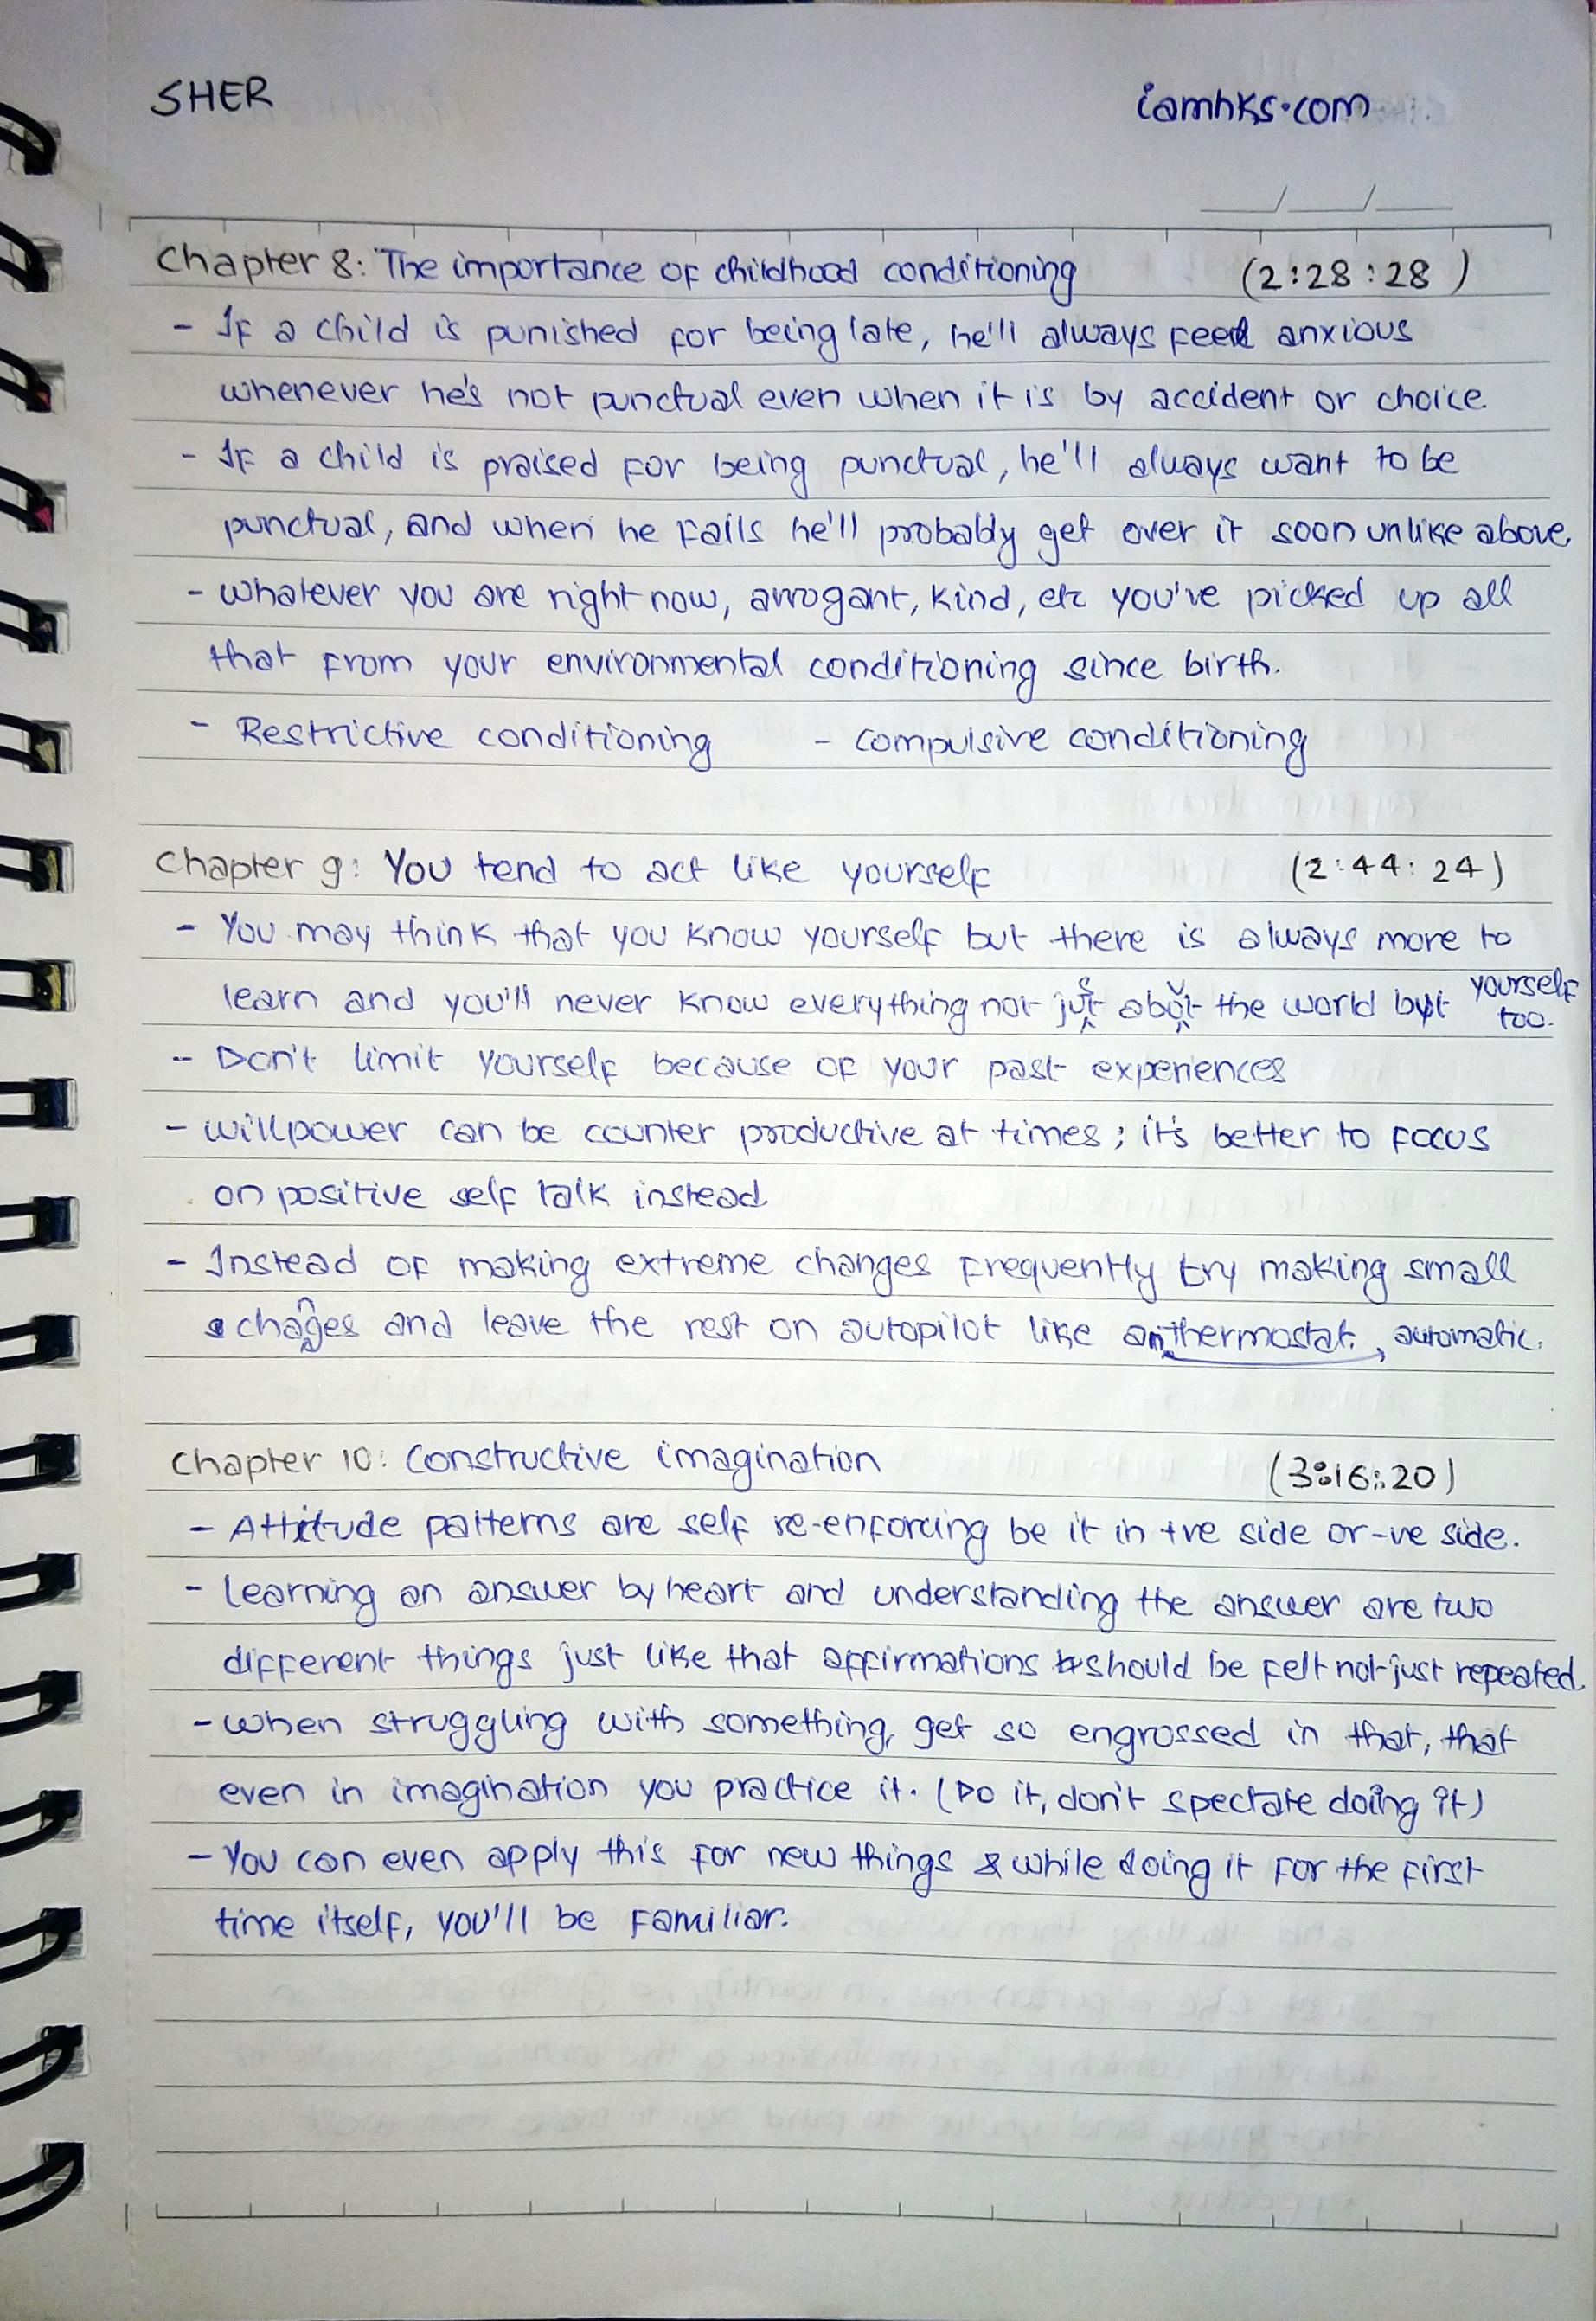 SHER
iamhks.com
Chapter 8: The importance of childhood conditioning (2:28:28)
- If a child is punished for being late, he'll always feel anxious
whenever he's not punctual even when it is by accident or choice.
- If a child is praised for being punctual, he'll always want to be
punctual, and when he fails he'll probably get over it soon unlike above.
- Whatever you are right now, arrogant, kind, etc you've picked up all
that from your environmental conditioning since birth.
- Restrictive conditioning - compulsive conditioning
Chapter 9: You tend to act like yourself (2:44:24)
- You may think that you know yourself but there is always more to
learn and you'll never know everything not just about the world but yourself too.
- Don't limit yourself because of your past experiences
- willpower can be counter productive at times; it's better to focus
on positive self talk instead.
- Instead of making extreme changes frequently try making small
changes and leave the rest on autopilot like an automatic thermostat.
Chapter 10: Constructive imagination (3:16:20)
- Attitude patterns are self re-enforcing be it in +ve side or -ve side.
- Learning an answer by heart and understanding the answer are two
different things just like that affirmations should be felt not just repeated.
- When struggling with something, get so engrossed in that, that
even in imagination you practice it. (Do it, don't spectate doing it)
- You can even apply this for new things & while doing it for the first
time itself, you'll be familiar.